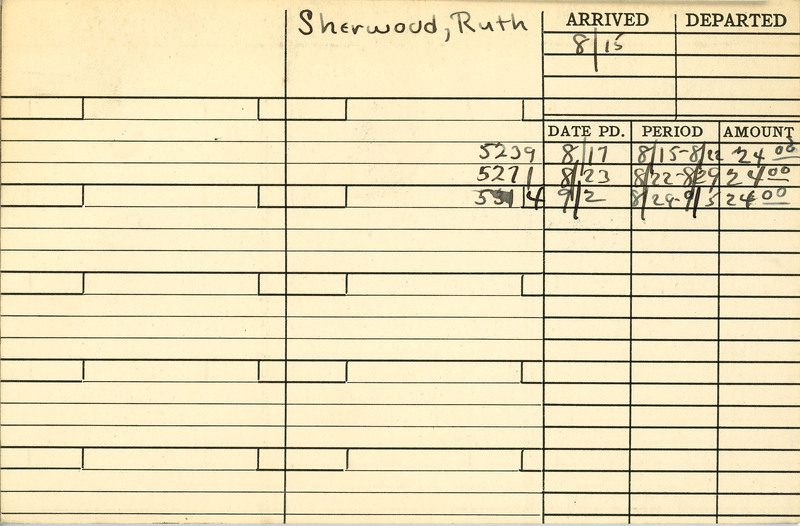 Sherwood, Ruth
ARRIVED DEPARTED
8/15
DATE PD. PERIOD AMOUNT
5239 8/17 8/15-8/22 24 00
5271 8/23 8/22-8/29 24 00
5314 9/2 8/29-9/5 24 00